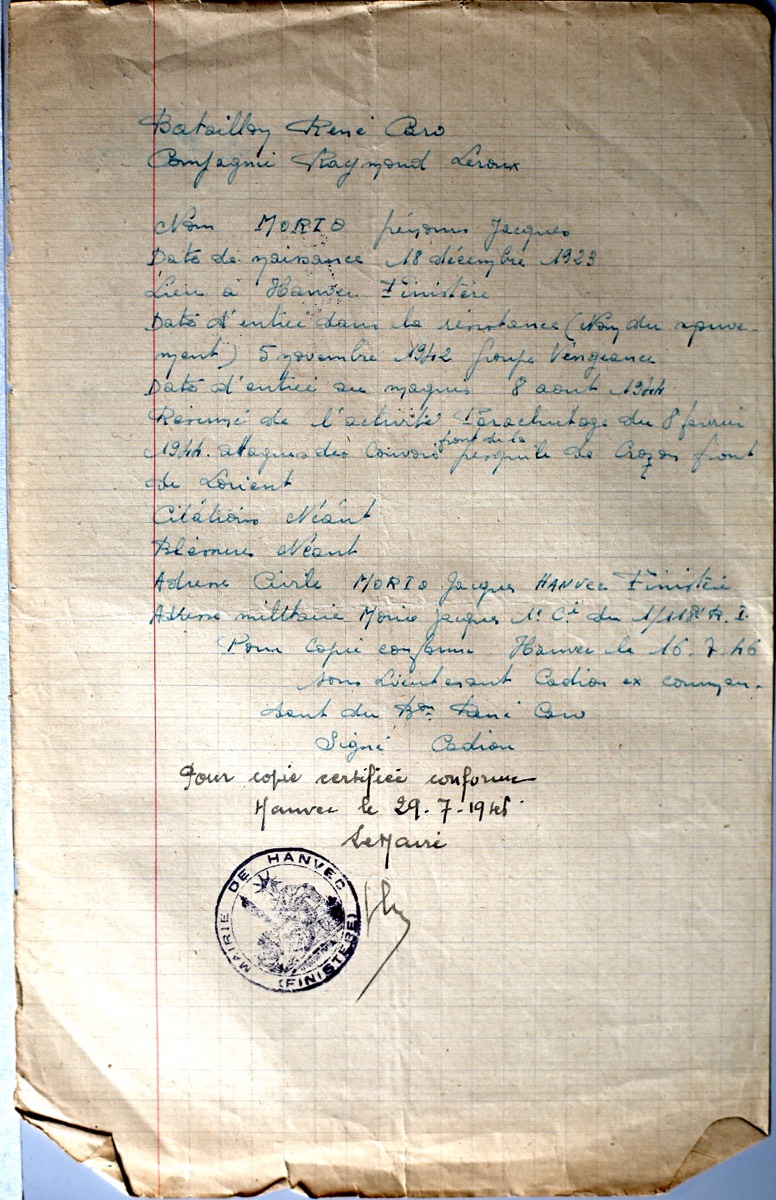 Bataillon René Caro
Compagnie Raymond Leroux
Nom MORIO prénoms Jacques
Date de naissance 18 décembre 1923
Lieu à Hanvec Finistère
Date d'entrée dans la résistance (Nom du mouve-
ment) 5 novembre 1942 groupe Vengeance
Date d'entrée au maquis 8 aout 1944
Résumé de l'activité Parachutage du 8 fevrier
1944. attaques des convois front de la presqu'ile de Crozon front
de Lorient
Citations Néant
Blessures Néant
Adresse Civile MORIO Jacques HANVEC Finistère
Adresse militaire Morio Jacques 1e Cie du 1/118e R. I.
Pour Copie conforme Hanvec le 16.7.46
sous Lieutenant Cadiou ex comman-
dant du Bon René Caro
Signé Cadiou
Pour copie certifiée conforme
Hanvec le 29-7-194
Le Maire
MAIRIE DE HANVEC (FINISTERE)